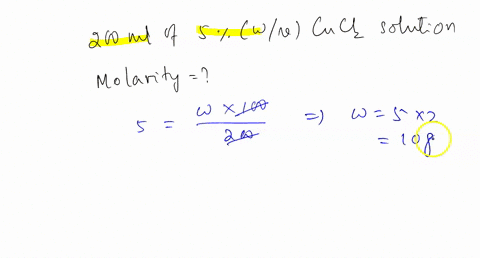 200 ml of 5% (w/v) CuCl2 solution
Molarity = ?
5 = w × 100 / 200 ⇒ w = 5 × 2
= 10 g